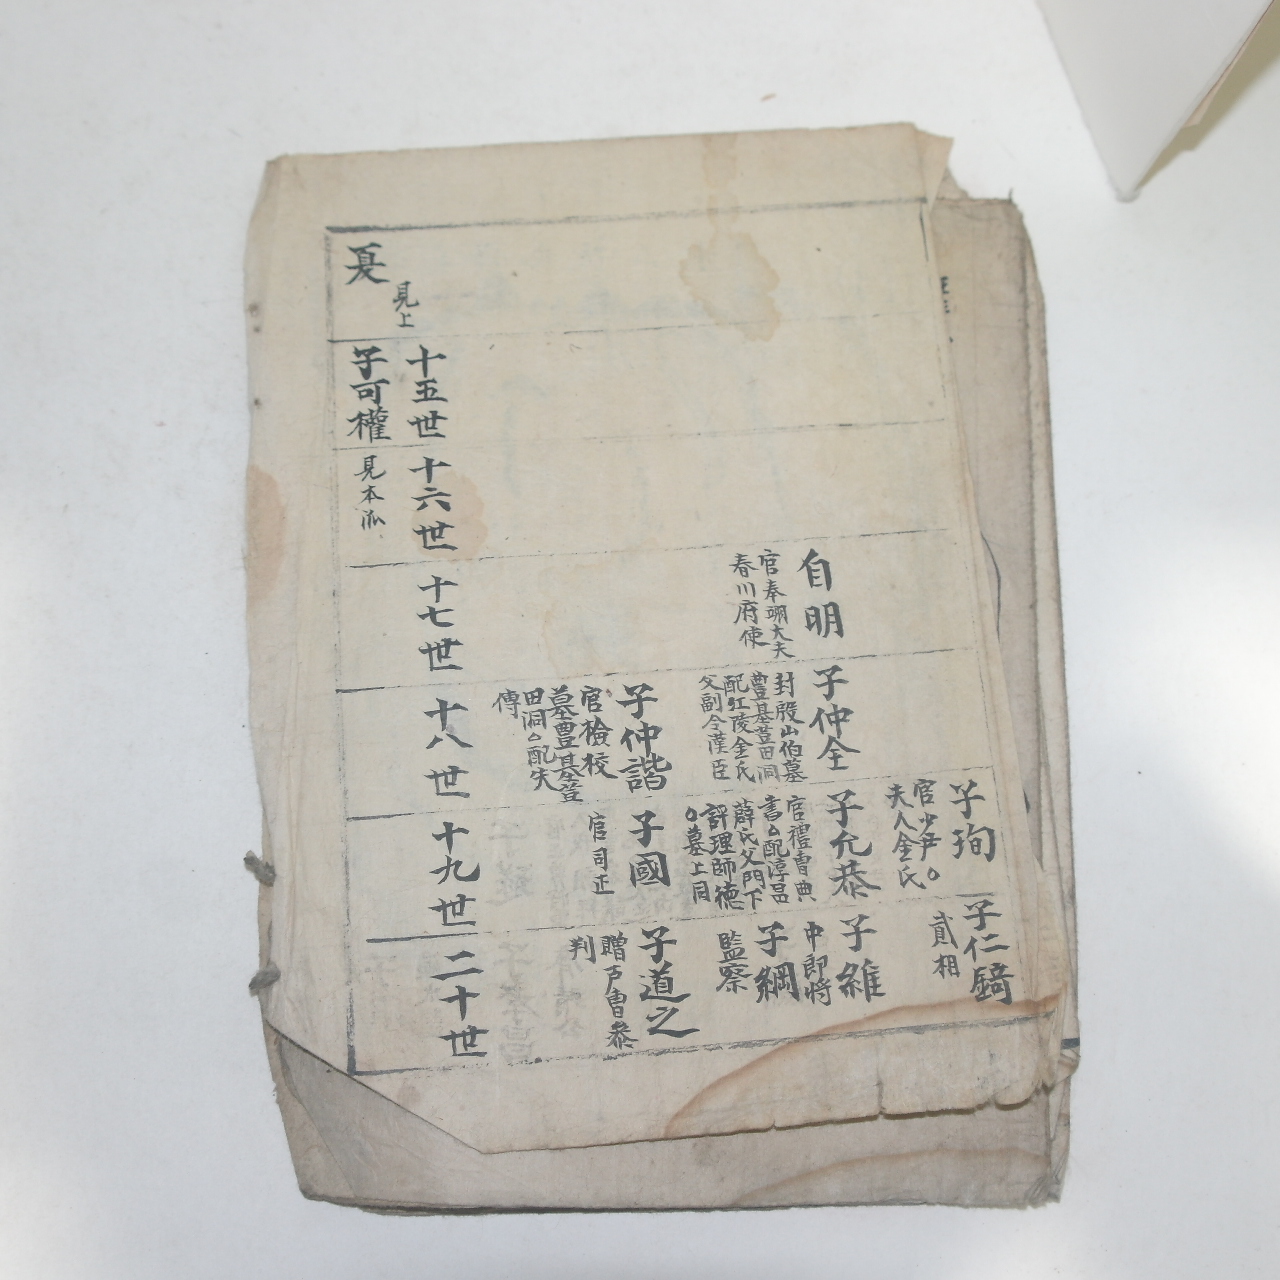 子珣
官少尹○
夫人金氏
子仁錡
貳相
自明
官奉翊大夫
春川府使
子仲全
封殷山伯墓
豊基荳田洞
配江陵金氏
父副令漢臣
子允恭
官禮曹典
書△配淳昌
薛氏父門下
評理師德
○墓上同
子維
中郎將
子綱
監察
子仲諧
官檢校
墓豊基荳
田洞△配失
傳
子國
官司正
子道之
贈戸曹叅
判
十五世
十六世
十七世
十八世
十九世
二十世
夏
見上
子可權
見本派